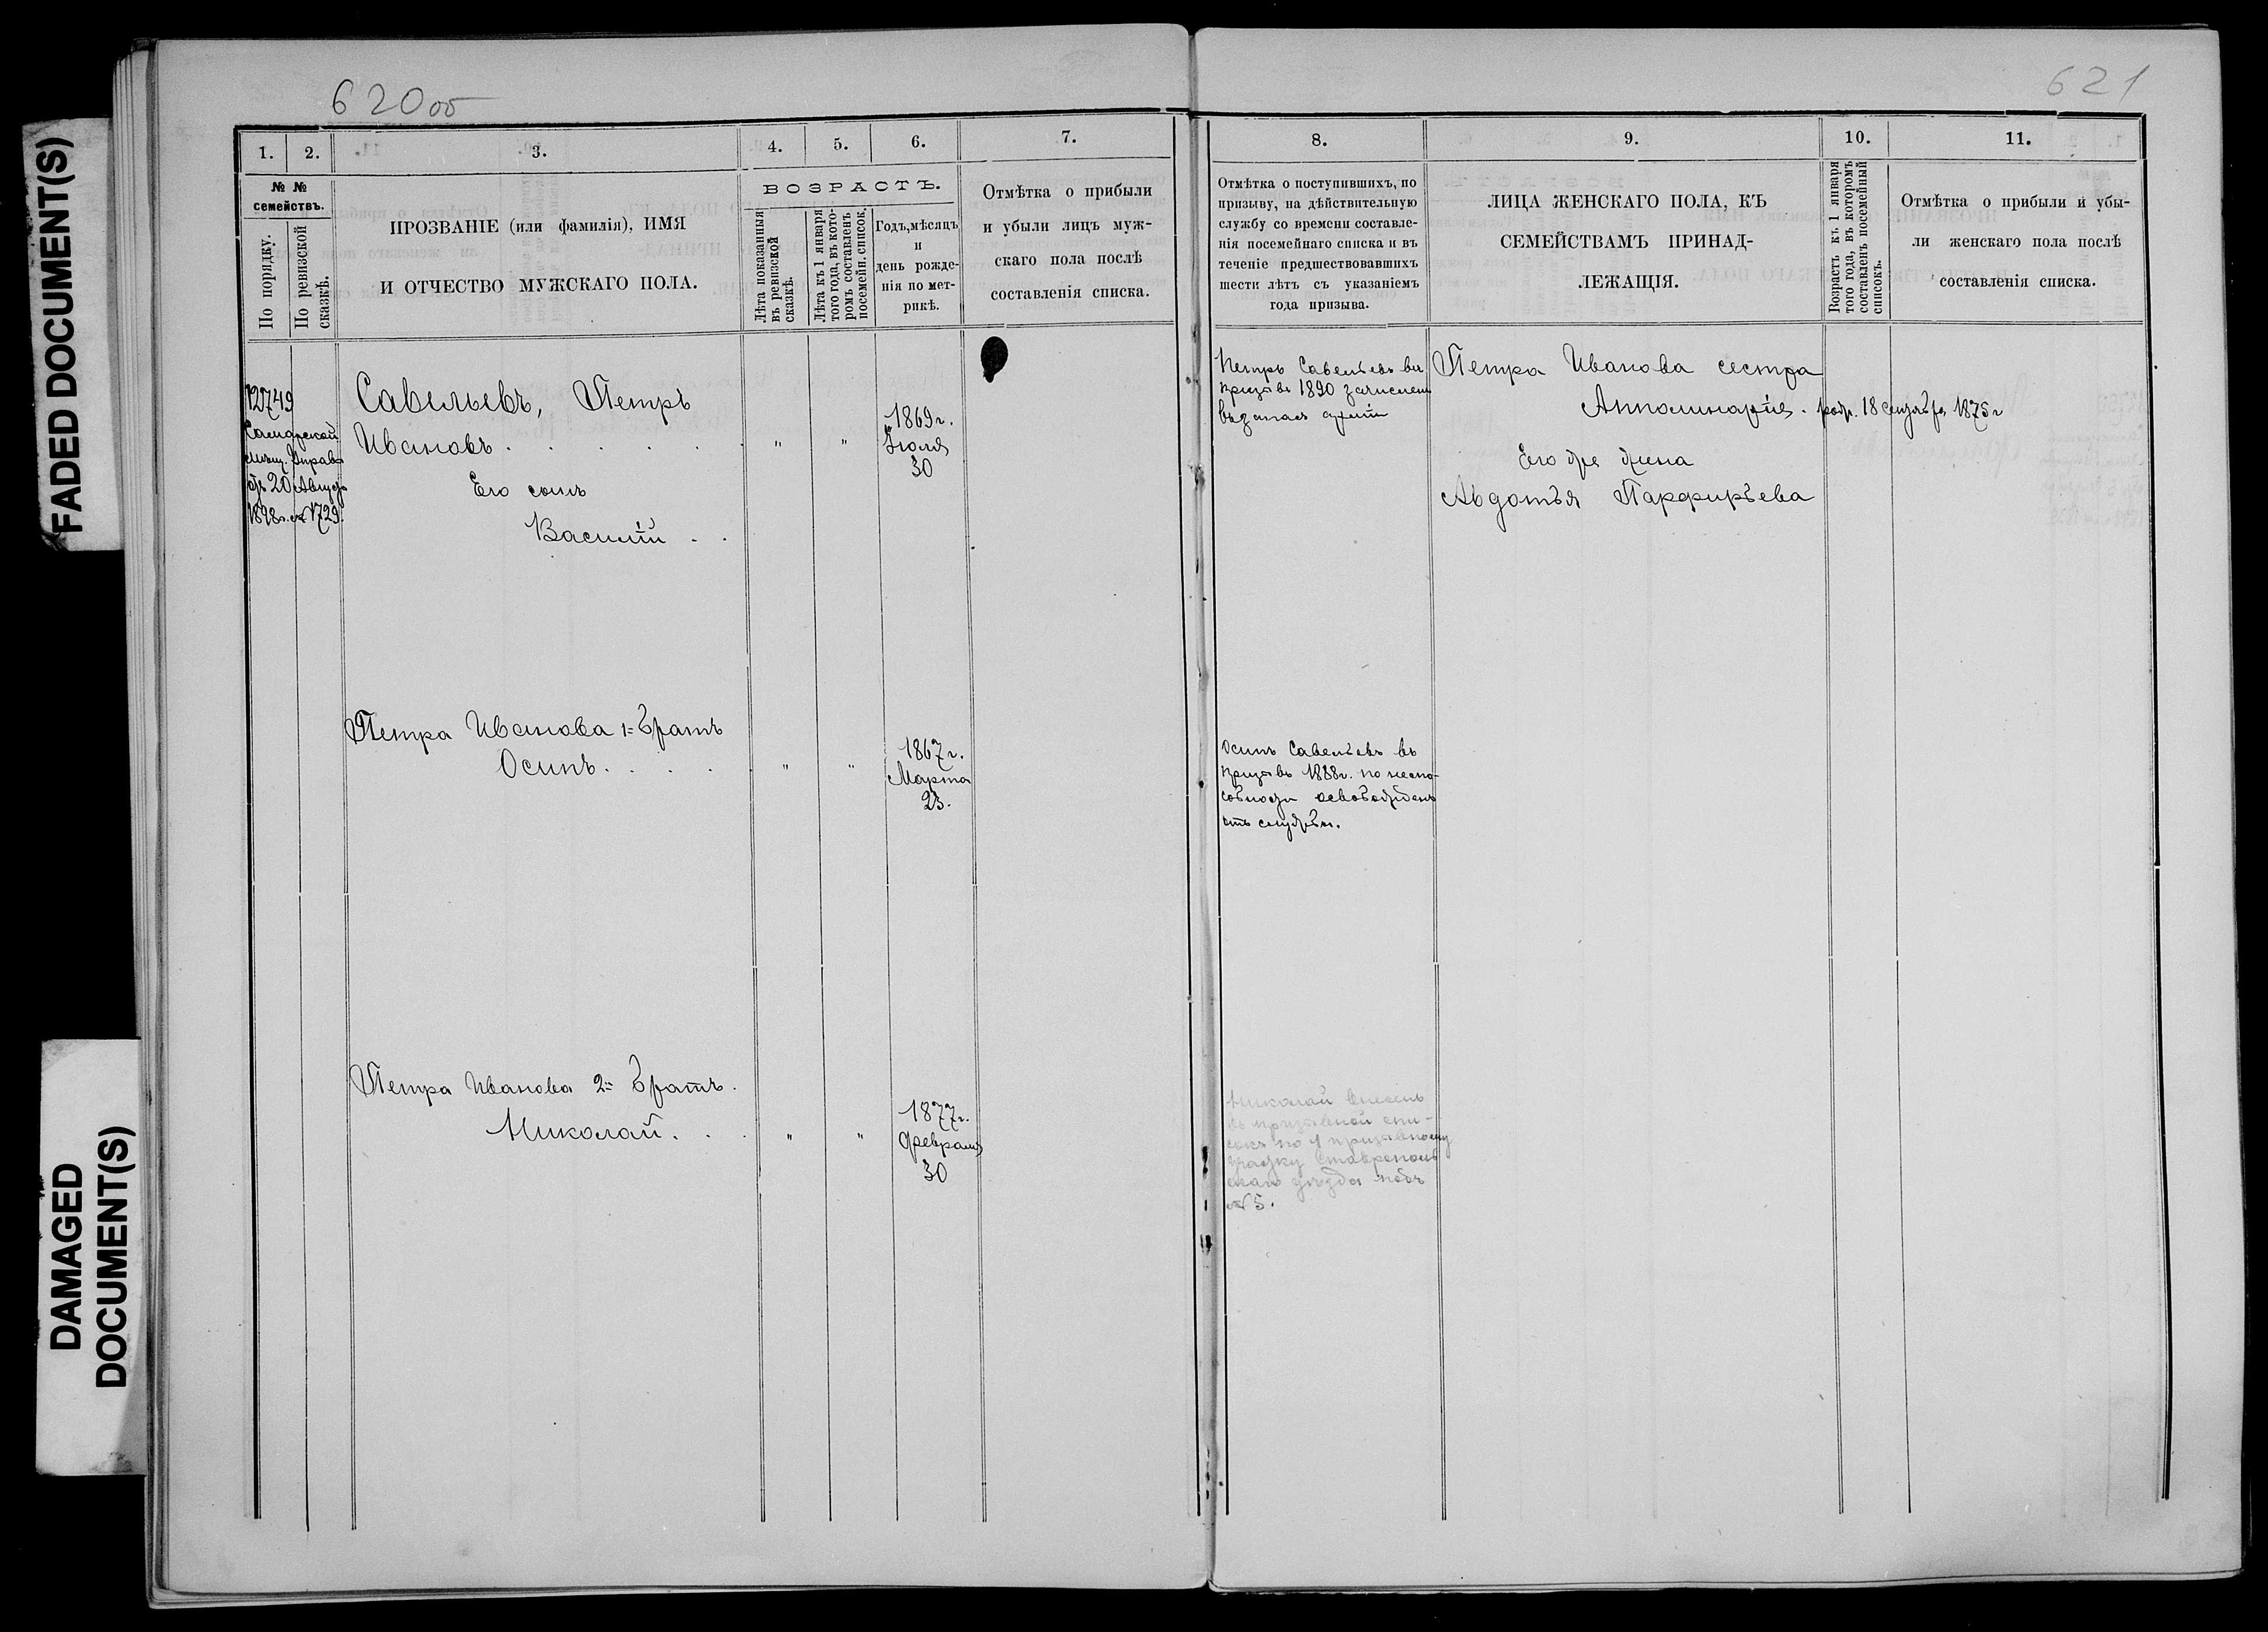 FADED DOCUMENT(S)
DAMAGED
DOCUMENT(S)
620об
1. 2. 3. 4. 5. 6. 7.
№ №
семействъ.
По порядку.
По ревизской
сказкѣ.
ПРОЗВАНІЕ (или фамилія), ИМЯ
И ОТЧЕСТВО МУЖСКАГО ПОЛА.
ВОЗРАСТЪ.
Лѣта показанныя
въ ревизской
сказкѣ.
Лѣта къ 1 января
того года, въ кото-
ромъ составленъ
посемейн. список.
Годъ, мѣсяцъ
и
день рожде-
нія по мет-
рикѣ.
Отмѣтка о прибыли
и убыли лицъ муж-
скаго пола послѣ
составленія списка.
12749
Самарской
мѣщ. Управы
отъ 20 Августа
1898 г. № 1729.
Савельевъ, Петръ
Ивановъ . . . . . " "
1869 г.
Іюля
30
Его сынъ
Василій . .
Петра Иванова 1й братъ
Осипъ. . . . " "
1867 г.
Марта
23.
Петра Иванова 2й братъ.
Николай. . . " "
1877 г.
Февраля
30
621
8. 9. 10. 11.
Отмѣтка о поступившихъ, по
призыву, на дѣйствительную
службу со времени составле-
нія посемейнаго списка и въ
теченіе предшествовавшихъ
шести лѣтъ съ указаніемъ
года призыва.
ЛИЦА ЖЕНСКАГО ПОЛА, КЪ
СЕМЕЙСТВАМЪ ПРИНАД-
ЛЕЖАЩІЯ.
Возрастъ къ 1 января
того года, въ которомъ
составленъ посемейный
списокъ.
Отмѣтка о прибыли и убы-
ли женскаго пола послѣ
составленія списка.
Петръ Савельевъ въ
призывъ 1890 зачисленъ
въ запасъ арміи
Петра Иванова сестра
Апполинарія . род. 18 сентября 1875 г
Его же жена
Авдотья Парфирьева
Осипъ Савельевъ въ
призывъ 1888 г. по неспо-
собности освобожденъ
отъ службы.
Николай внесенъ
въ призывной спи-
сокъ по 1 призывному
участку Ставрополь
скаго уѣзда подъ
№ 5.